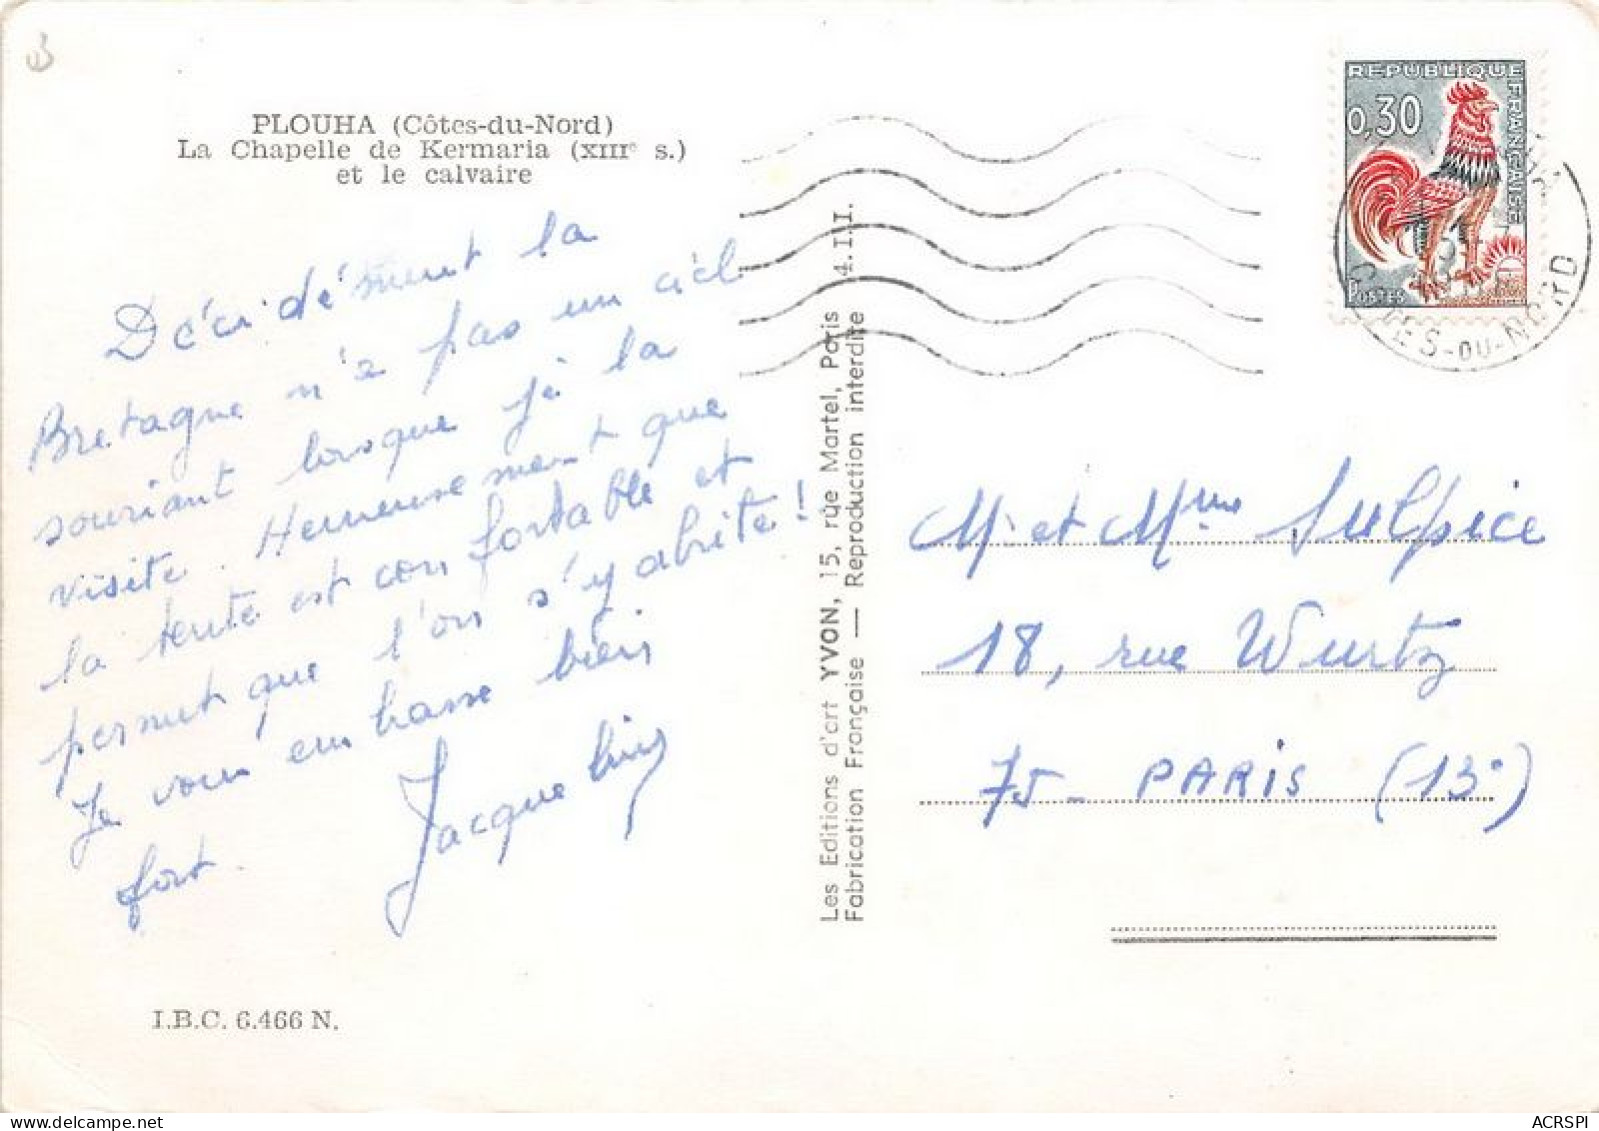 PLOUHA (Côtes-du-Nord)
La Chapelle de Kermaria (XIIIᵉ s.)
et le calvaire
Décidément la
Bretagne n'a pas un ciel
souriant lorsque je la
visite. Heureusement que
la tente est confortable et
permet que l'on s'y abrite !
Je vous embrasse bien
fort.
Jacqueline
I.B.C. 6.466 N.
Les Editions d'art YVON, 15, rue Martel, Paris
Fabrication Française — Reproduction interdite 4.I.I.
REPUBLIQUE FRANÇAISE
0,30
POSTES
DU-NORD
Mr et Mme Sulpice
18, rue Wurtz
75 - PARIS (13°)
ACRSPI